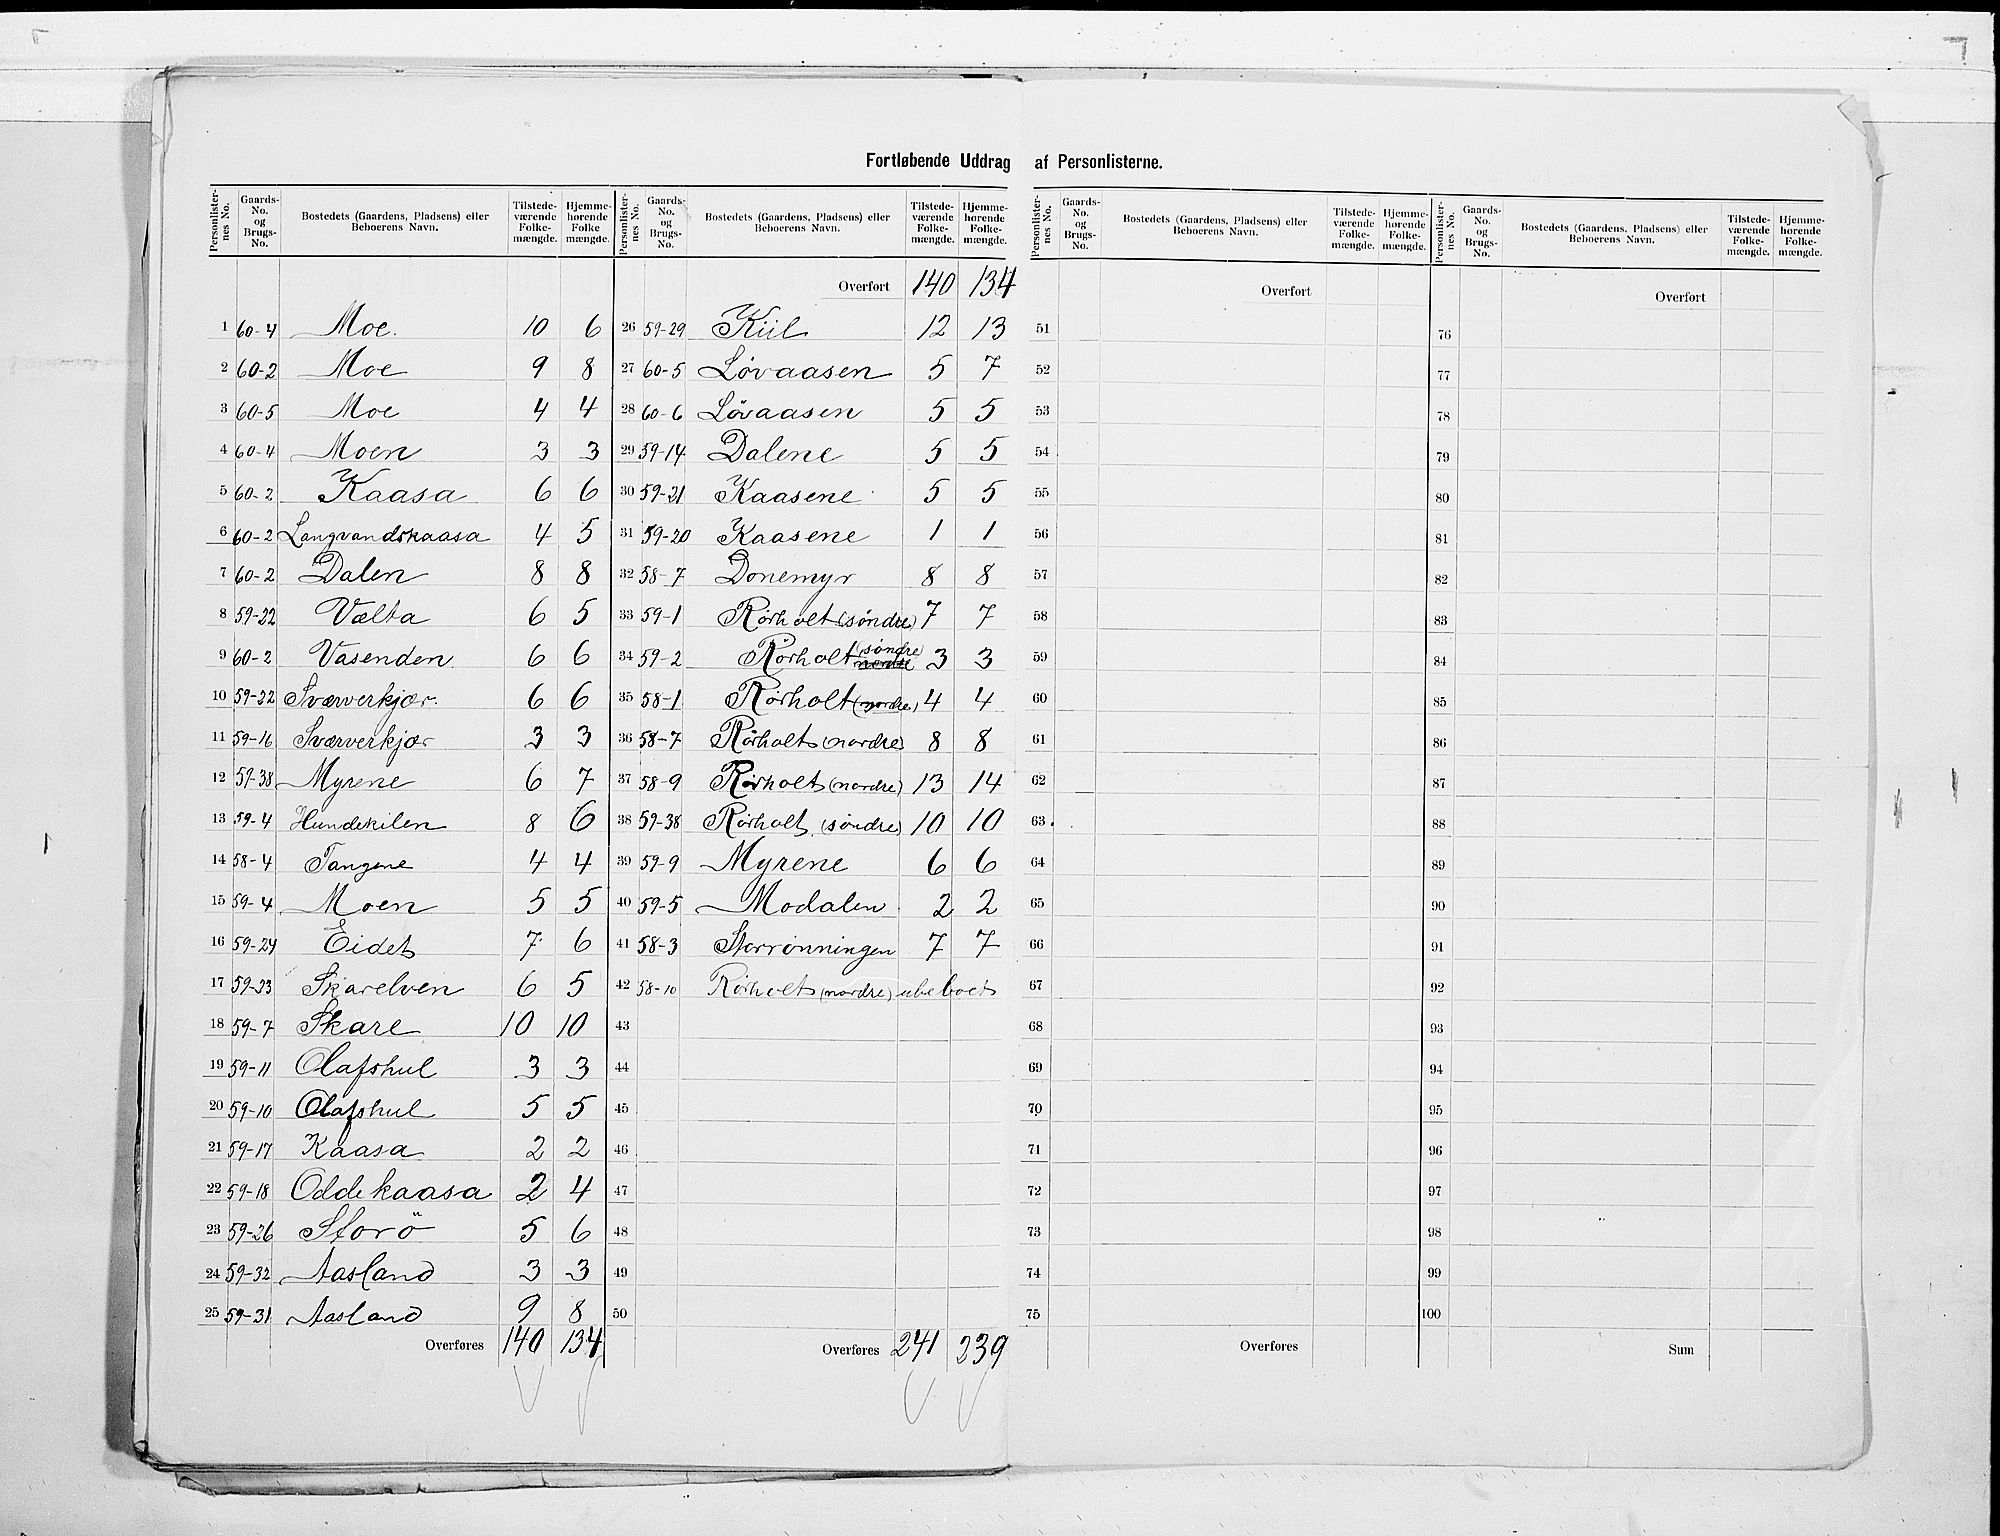 Fortløbende Uddrag af Personlisterne.
Personlister-nes No. Gaards-No. og Brugs-No. Bostedets (Gaardens, Pladsens) eller Beboerens Navn. Tilstede-værende Folke-mængde. Hjemme-hørende Folke mængde. Personlister-nes No. Gaards-No. og Brugs-No. Bostedets (Gaardens, Pladsens) eller Beboerens Navn. Tilstede-værende Folke-mængde. Hjemme-hørende Folke-mængde. Personlister-nes No. Gaards-No. og Brugs-No. Bostedets (Gaardens, Pladsens) eller Beboerens Navn. Tilstede-værende Folke-mængde. Hjemme-hørende Folke-mængde. Personlister-nes No. Gaards-No. og Brugs-No. Bostedets (Gaardens, Pladsens) eller Beboerens Navn. Tilstede-værende Folke-mængde. Hjemme-hørende Folke-mængde.
Overført 140 134 Overført Overført
1 60-4 Moe. 10 6 26 59-29 Kiil 12 13 51 76
2 60-2 Moe 9 8 27 60-5 Løvaasen 5 7 52 77
3 60-5 Moe 4 4 28 60-6 Løvaasen 5 5 53 78
4 60-4 Moen 3 3 29 59-14 Dalene 5 5 54 79
5 60-2 Kaasa 6 6 30 59-21 Kaasene 5 5 55 80
6 60-2 Langvandskaasa 4 5 31 59-20 Kaasene 1 1 56 81
7 60-2 Dalen 8 8 32 58-7 Donemyr 8 8 57 82
8 59-22 Vælta 6 5 33 59-1 Rørholt (søndre) 7 7 58 83
9 60-2 Vasenden 6 6 34 59-2 Rørholt (søndre) nordre 3 3 59 84
10 59-22 Sværverkjær. 6 6 35 58-1 Rørholt (nordre) 4 4 60 85
11 59-16 Sværverkjær 3 3 36 58-7 Rørholt (nordre) 8 8 61 86
12 59-38 Myrene 6 7 37 58-9 Rørholt (nordre) 13 14 62 87
13 59-4 Hundekilen 8 6 38 59-38 Rørholt (søndre) 10 10 63 88
14 58-4 Tangene 4 4 39 59-9 Myrene 6 6 64 89
15 59-4 Moen 5 5 40 59-5 Modalen 2 2 65 90
16 59-24 Eidet 7 6 41 58-3 Storrønningen 7 7 66 91
17 59-23 Skarelven 6 5 42 58-10 Rørholt (nordre) ubeboet 67 92
18 59-7 Skare 10 10 43 68 93
19 59-11 Olafshul 3 3 44 69 94
20 59-10 Olafshul 5 5 45 70 95
21 59-17 Kaasa 2 2 46 71 96
22 59-18 Oddekaasa 2 4 47 72 97
23 59-26 Storö 5 6 48 73 98
24 59-32 Aasland 3 3 49 74 99
25 59-31 Aasland 9 8 50 75 100
Overføres 140 134 Overføres 241 239 Overføres Sum